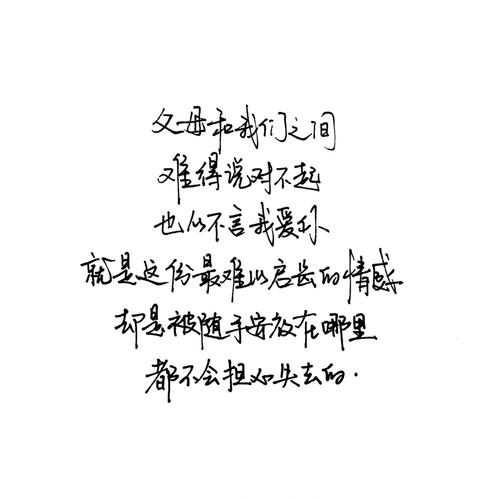 父母和我们之间
难得说对不起
也从不言我爱你
就是这份最难以启长的情感
却是被随手安放在哪里
都不会担心失去的.